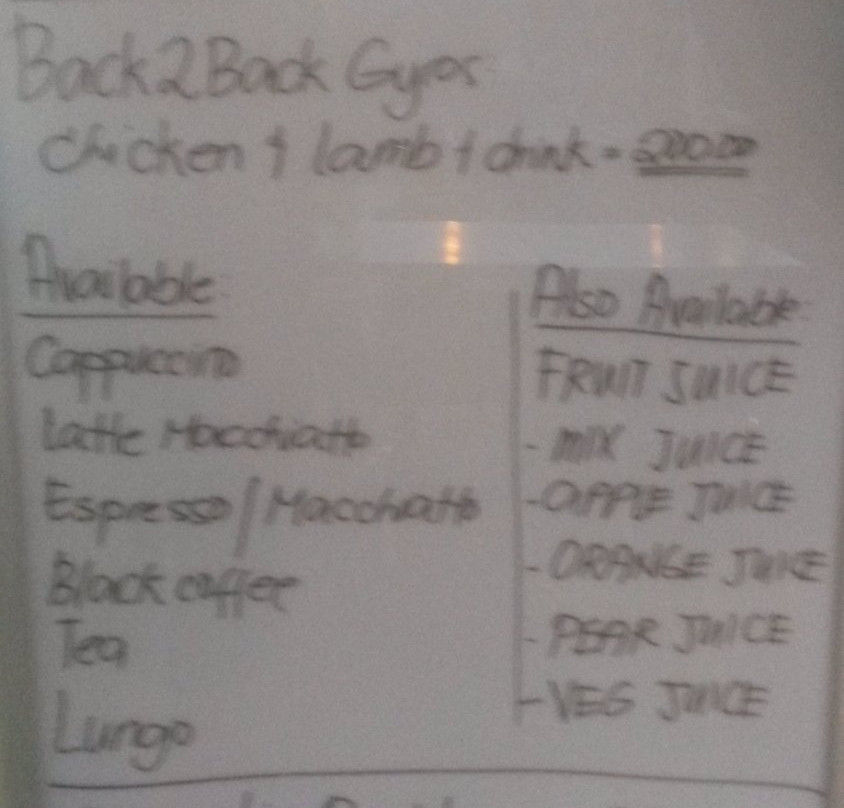 Back2Back Gyros
Chicken + lamb + drink = 200.00
Available:
Cappuccino
Latte Macchiatto
Espresso/Macchiatto
Black coffee
Tea
Lungo
Also Available:
FRUIT JUICE
- MIX JUICE
- APPLE JUICE
- ORANGE JUICE
- PEAR JUICE
- VEG JUICE